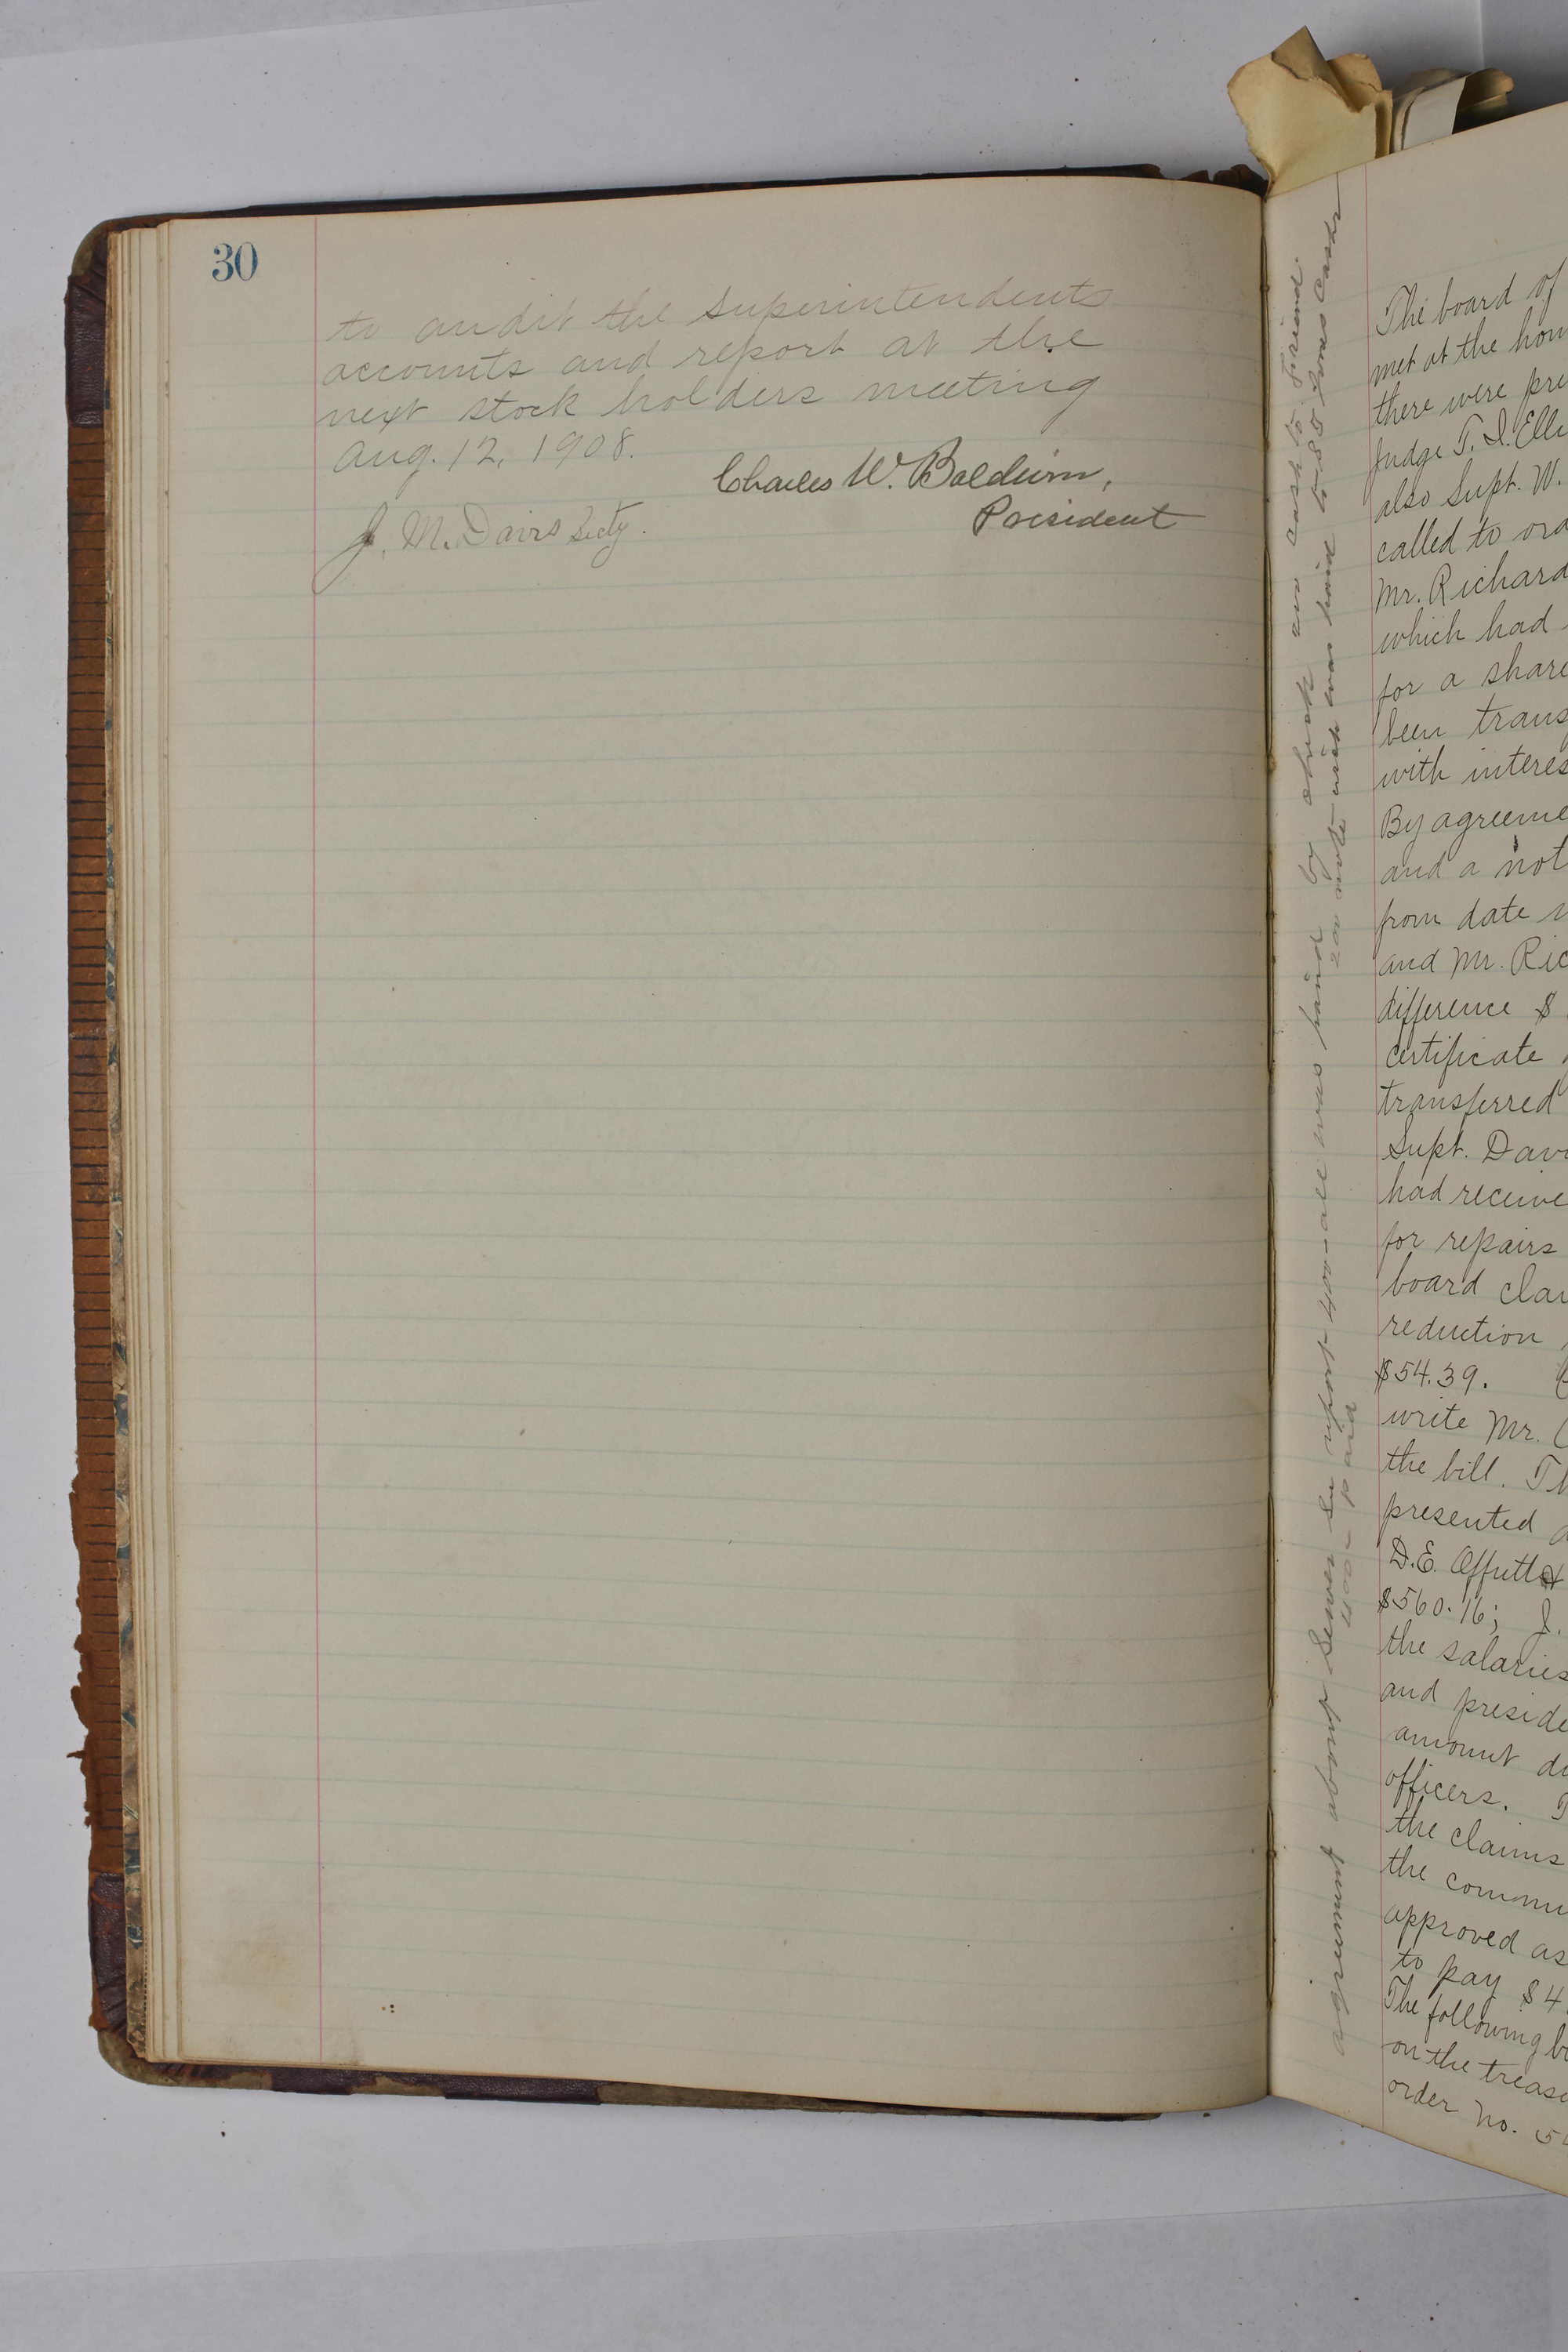 30
to audit the Superintendents
accounts and report at the
next stock holders meeting
Aug. 12, 1908.
Charles W. Baldwin,
President
J. M. Davis Secty.
agreement about Sewer
400 all was paid by check
400 - paid
note was paid
The board of
met at the hom
there were pre
Judge T. I. Elli
also Supt. W.
called to ord
Mr. Richard
which had
for a share
been trans
with interes
By agreeme
and a not
from date
and Mr. Ric
difference $
certificate
transferred
Supt. Davi
had receive
for repairs
board clai
reduction
$54.39.
write Mr.
the bill. Th
presented
D.E. Offutt
$560.16; J.
the salaries
and preside
amount du
officers. T
the claims
the commu
approved as
to pay $4
The following b
on the treas
order no. 54